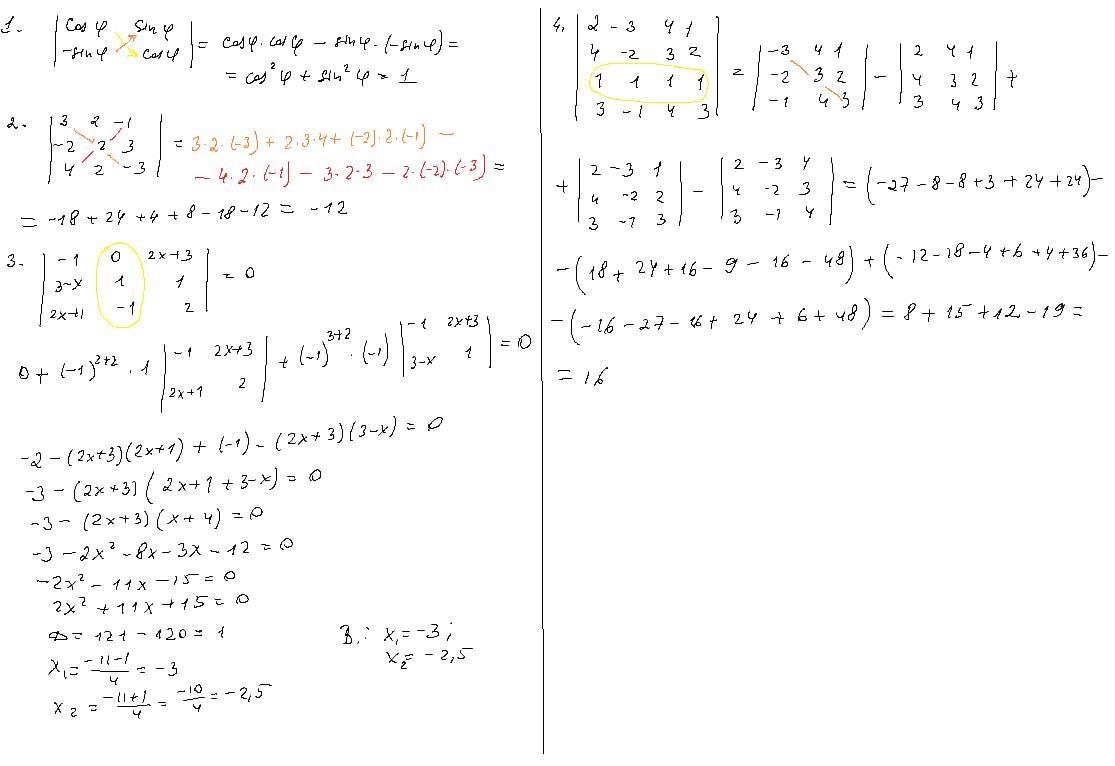 1. | cos φ sin φ |
| -sin φ cos φ | = cos φ · cos φ - sin φ · (-sin φ) =
= cos² φ + sin² φ = 1
2. | 3 2 -1 |
| -2 2 3 | = 3·2·(-3) + 2·3·4 + (-2)·2·(-1) -
| 4 2 -3 | - 4·2·(-1) - 3·2·3 - 2·(-2)·(-3) =
= -18 + 24 + 4 + 8 - 18 - 12 = -12
3. | -1 0 2x+3 |
| 3-x 1 1 | = 0
| 2x+1 -1 2 |
0 + (-1)²⁺² · 1 | -1 2x+3 | + (-1)³⁺² · (-1) | -1 2x+3 | = 0
| 2x+1 2 | | 3-x 1 |
-2 - (2x+3)(2x+1) + (-1) - (2x+3)(3-x) = 0
-3 - (2x+3)(2x+1+3-x) = 0
-3 - (2x+3)(x+4) = 0
-3 - 2x² - 8x - 3x - 12 = 0
-2x² - 11x - 15 = 0
2x² + 11x + 15 = 0
D = 121 - 120 = 1
x₁ = -11-1/4 = -3
x₂ = -11+1/4 = -10/4 = -2,5
В.: x₁ = -3;
x₂ = -2,5
4. | 2 -3 4 1 |
| 4 -2 3 2 | | -3 4 1 | | 2 4 1 |
| 1 1 1 1 | = | -2 3 2 | - | 4 3 2 | +
| 3 -1 4 3 | | -1 4 3 | | 3 4 3 |
+ | 2 -3 1 | | 2 -3 4 |
| 4 -2 2 | - | 4 -2 3 | = (-27 - 8 - 8 + 3 + 24 + 24) -
| 3 -1 3 | | 3 -1 4 |
- (18 + 24 + 16 - 9 - 16 - 48) + (-12 - 18 - 4 + 6 + 4 + 36) -
- (-16 - 27 - 16 + 24 + 6 + 48) = 8 + 15 + 12 - 19 =
= 16